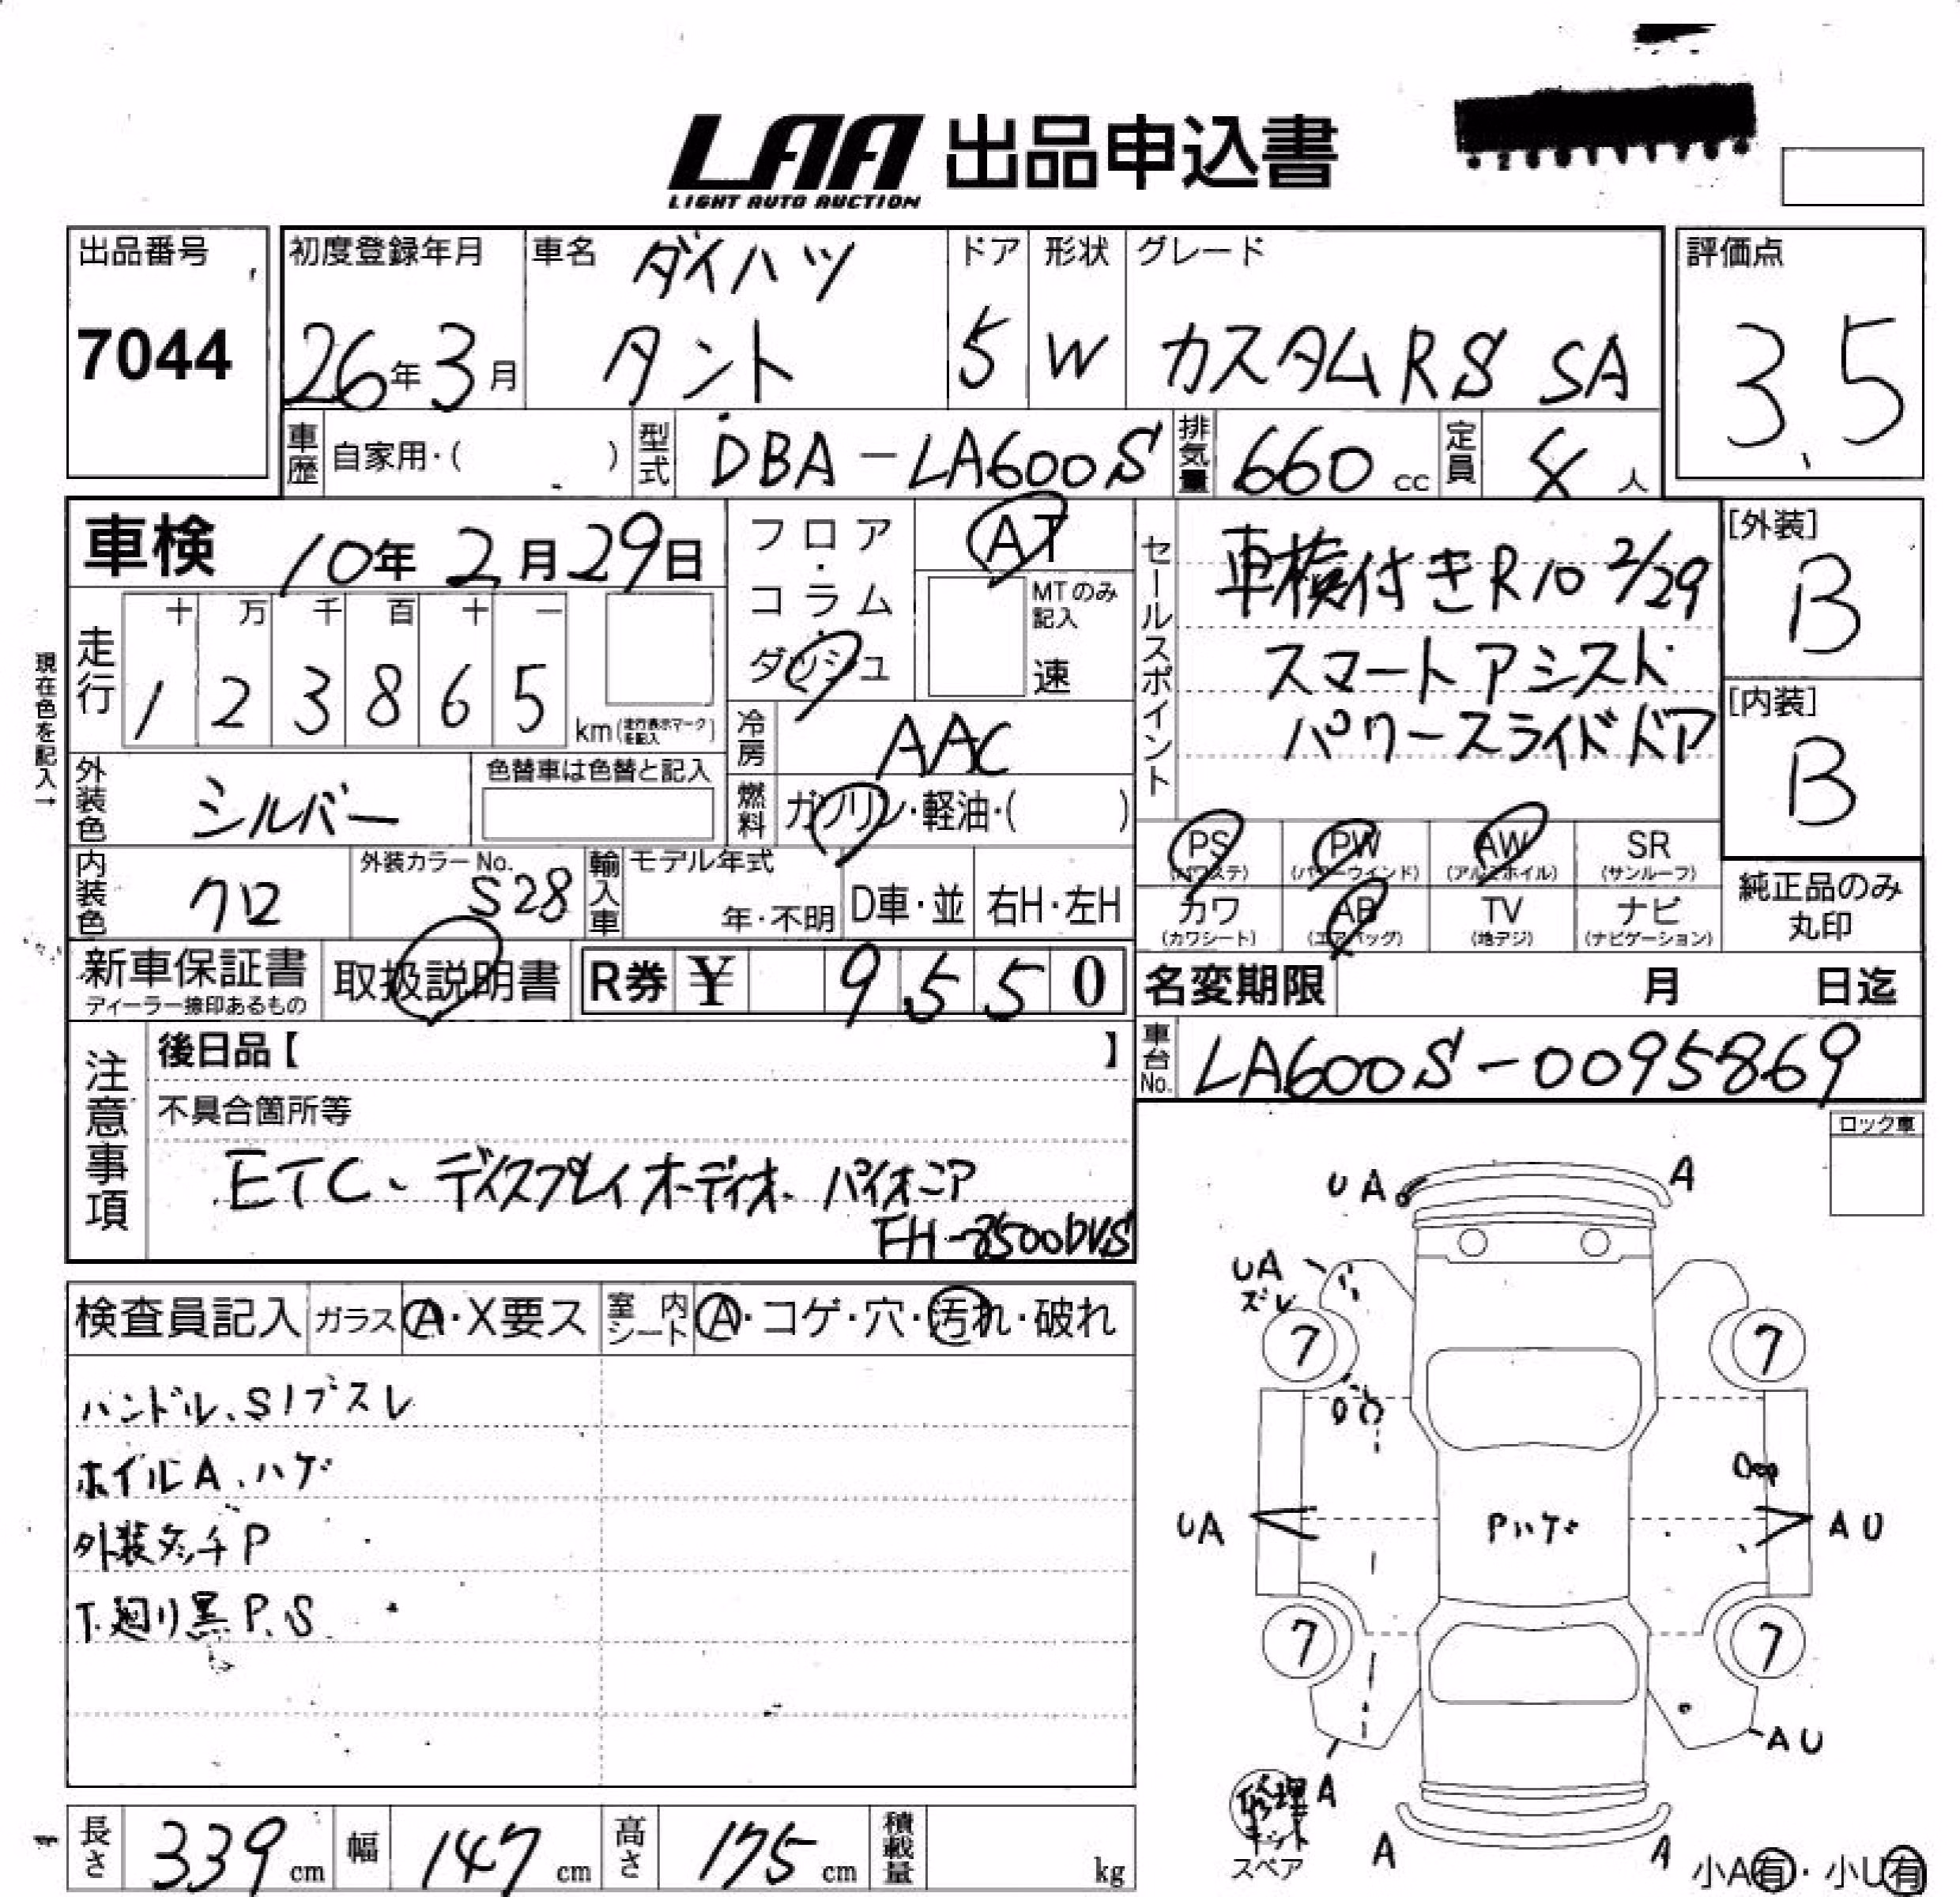 LAA 出品申込書
LIGHT AUTO AUCTION
出品番号
7044
初度登録年月
26年3月
車名 ダイハツ
タント
ドア
5
形状
W
グレード
カスタムRS SA
評価点
3.5
車歴 自家用・( )
型式 DBA-LA600S
排気量 660 cc
定員 4 人
車検 10年 2月29日
フロア・コラム・ダッシュ
AT
MTのみ記入
速
セールスポイント
車検付きR10 2/29
スマートアシスト
パワースライドドア
[外装]
B
[内装]
B
現在色を記入→
走行
十 万 千 百 十 一
1 2 3 8 6 5 km(走行表示マークを記入)
冷房 AAC
外装色 シルバー
色替車は色替と記入
燃料 ガソリン・軽油・( )
PS (パワステ)
PW (パワーウインド)
AW (アルミホイル)
SR (サンルーフ)
カワ (カワシート)
AB (エアバッグ)
TV (地デジ)
ナビ (ナビゲーション)
純正品のみ丸印
内装色 クロ
外装カラーNo. S28
輸入車
モデル年式
年・不明
D車・並
右H・左H
新車保証書
ディーラー捺印あるもの
取扱説明書
R券 ¥ 9550
名変期限 月 日迄
車台No. LA600S-0095869
注意事項
後日品【 】
不具合箇所等
ETC、ディスプレイオーディオ、パイオニア
FH-8500DVS
ロック車
検査員記入
ガラス A・X要ス
室内シート A・コゲ・穴・汚れ・破れ
ハンドル、Sノブスレ
ホイルA、ハゲ
外装タッチP
下廻り黒P、S
UA
A
UA
ズレ
7
7
UA
Pハゲ
AU
7
7
AU
A
修理キット
スペア
A
A
小A有・小U有
長さ 339 cm
幅 147 cm
高さ 175 cm
積載量 kg